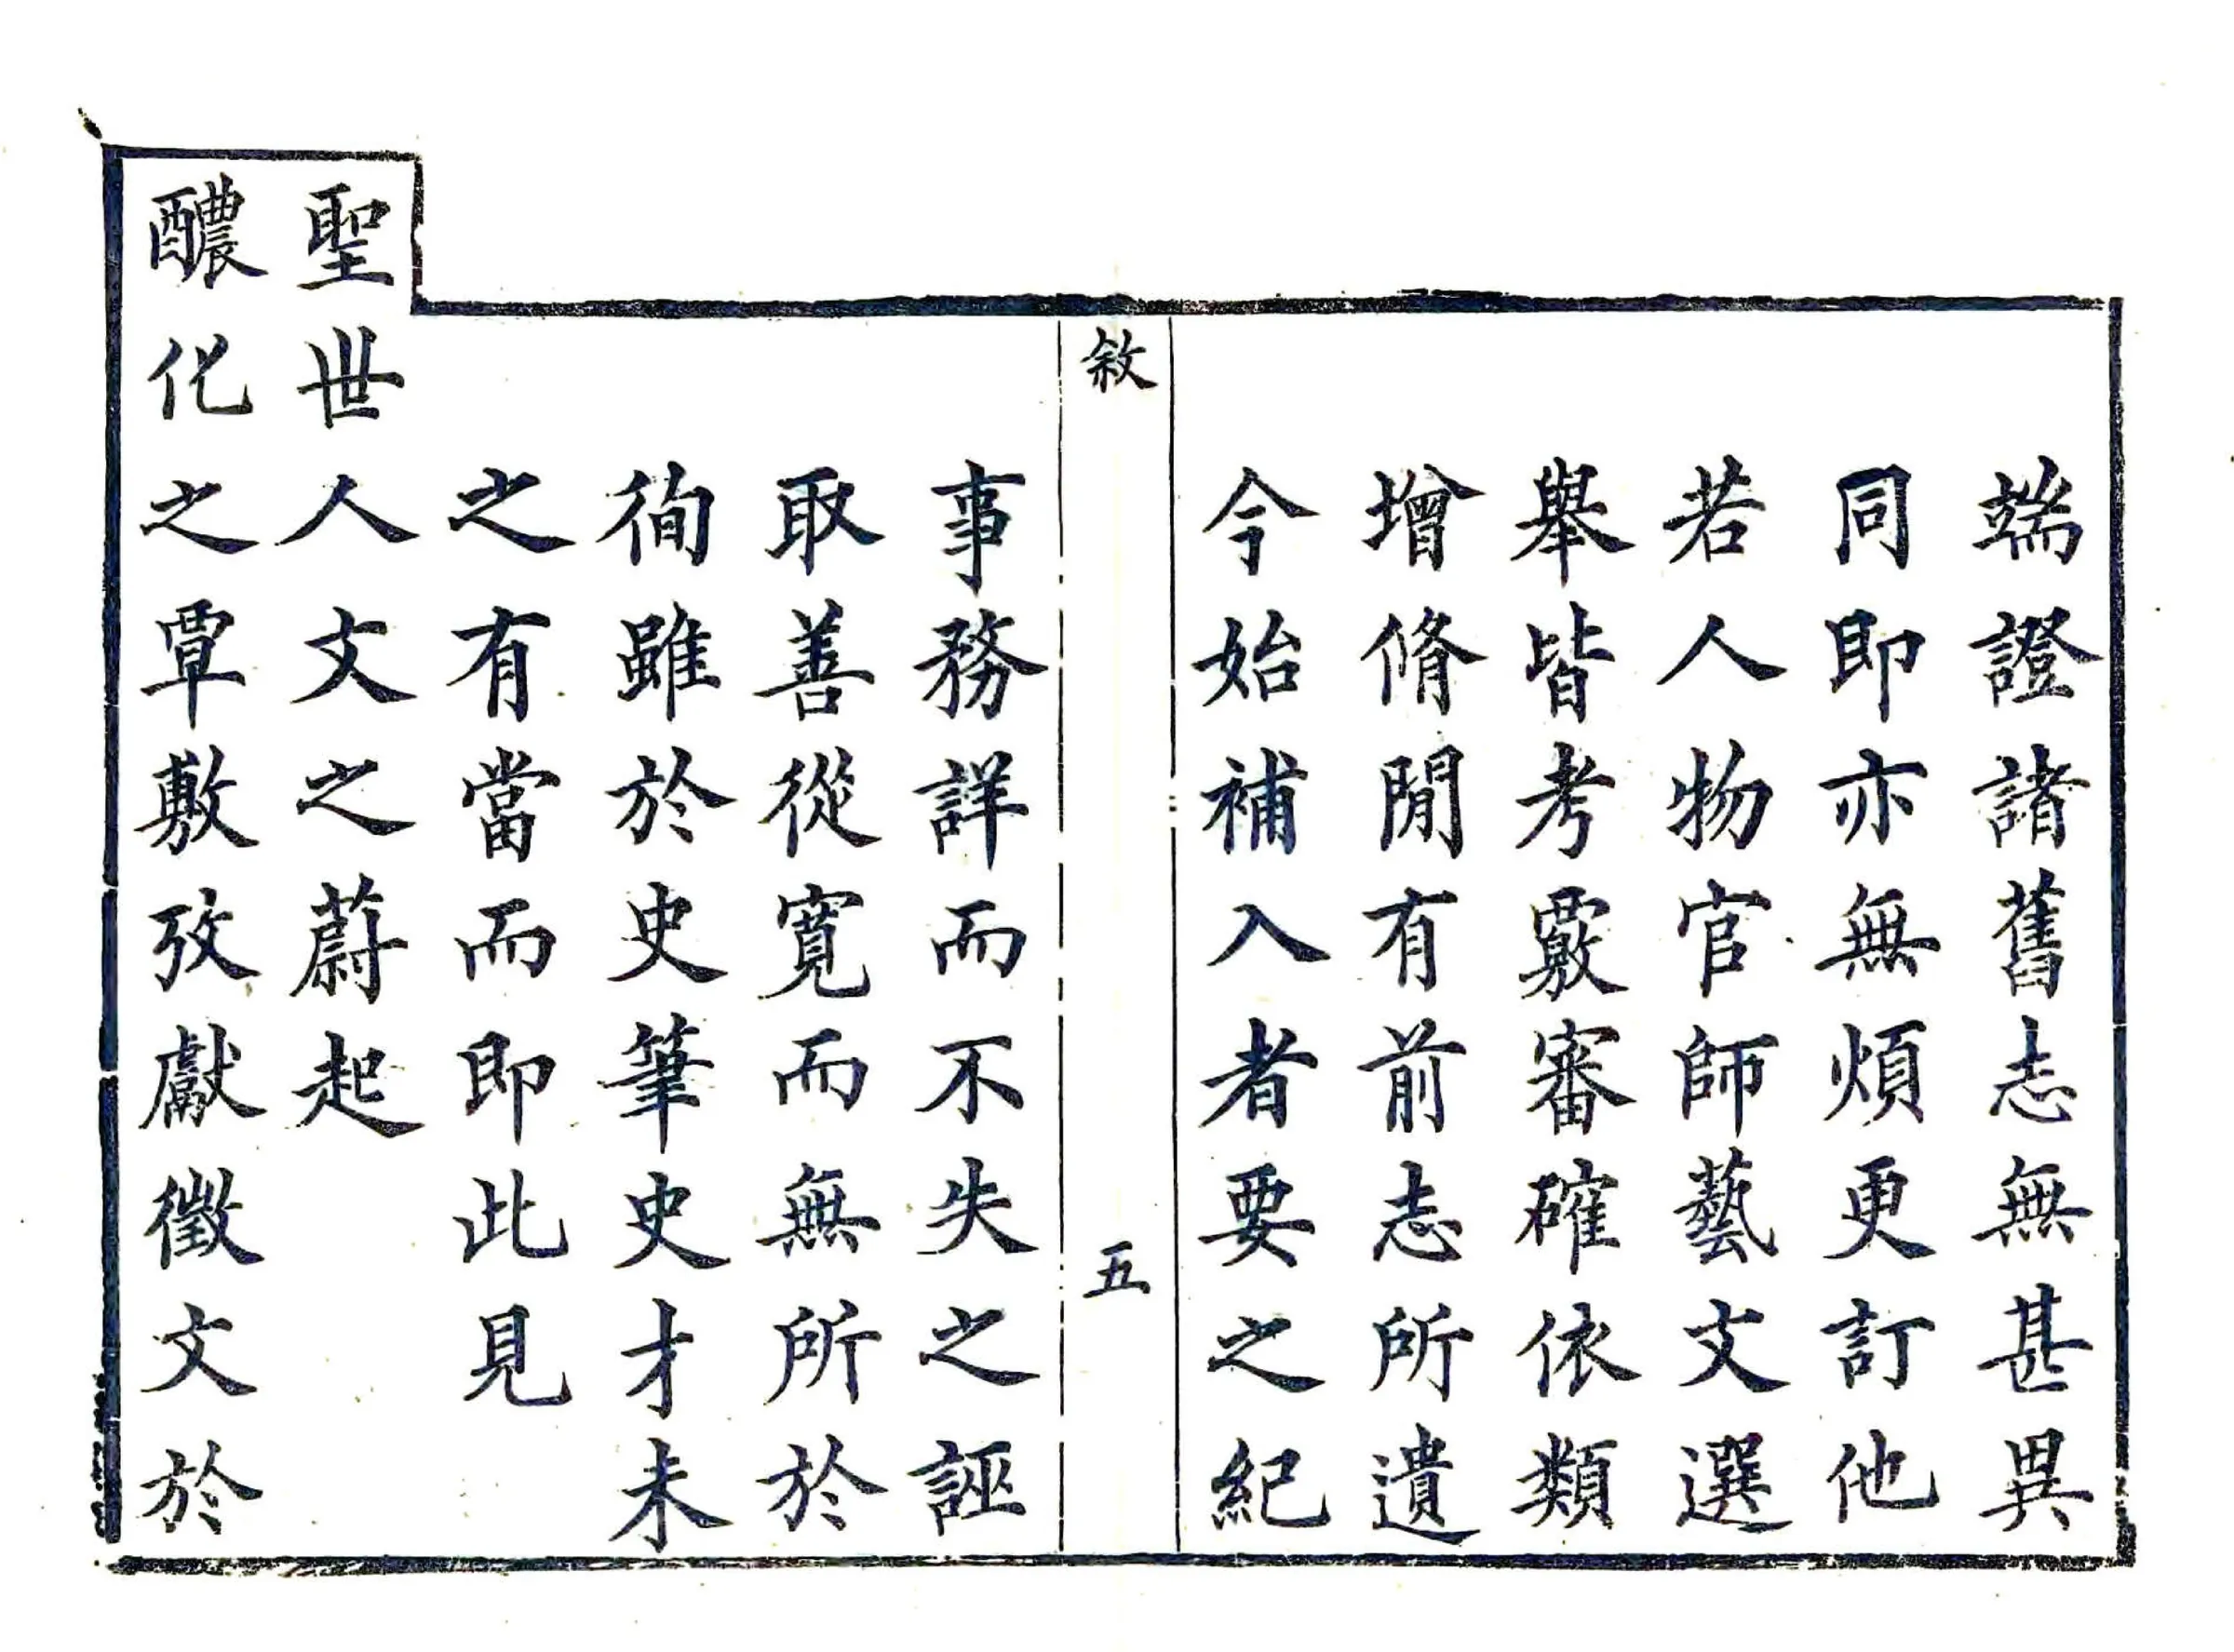 端證諸舊志無甚異
同即亦無煩更訂他
若人物官師藝文選
舉皆考覈審確依類
增脩閒有前志所遺
今始補入者要之紀
敘
五
事務詳而不失之誣
取善從寬而無所於
徇雖於史筆史才未
之有當而即此見
聖世人文之蔚起
醲化之覃敷攷獻徵文於